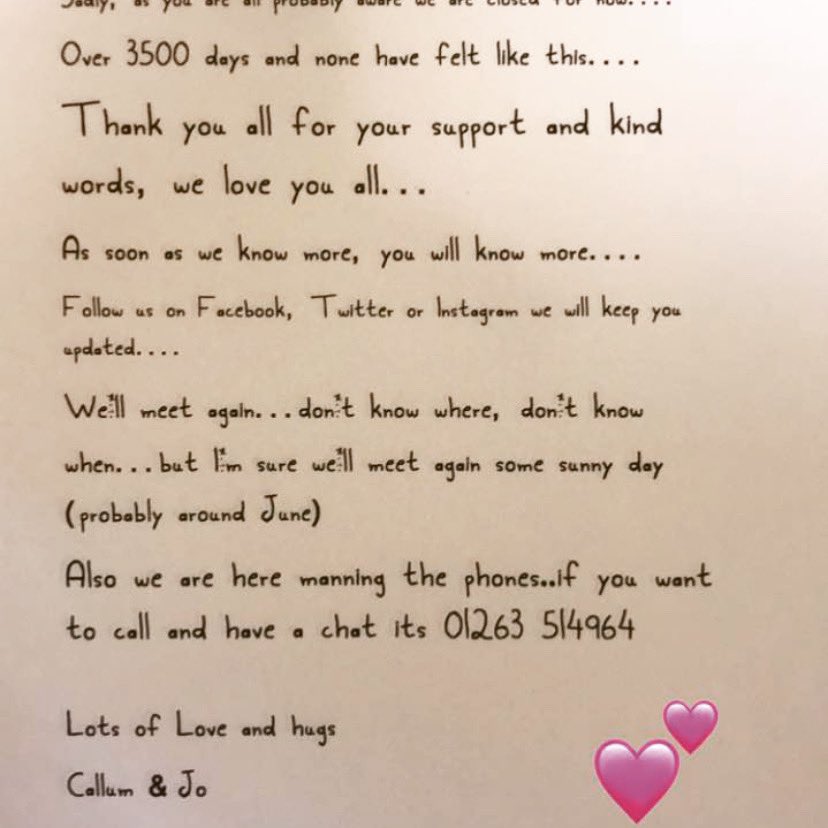 Sadly, as you are all probably aware we are closed for now....
Over 3500 days and none have felt like this....
Thank you all for your support and kind
words, we love you all...
As soon as we know more, you will know more....
Follow us on Facebook, Twitter or Instagram we will keep you
updated....
We'll meet again...don't know where, don't know
when...but I'm sure we'll meet again some sunny day
(probably around June)
Also we are here manning the phones..if you want
to call and have a chat its 01263 514964
Lots of Love and hugs
Callum & Jo